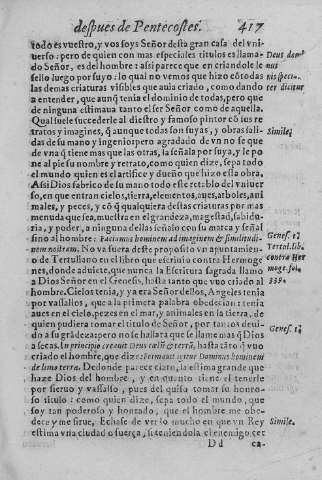 despues de Pentecostes. 417
todo es vuestro, y vos soys Señor desta gran casa del vni-
uerso: pero de quien con mas especiales titulos es llama-
do Señor, es del hombre: assi parece que en criandole le
sello luego por suyo: lo qual no vemos que hizo cõ todas
las demas criaturas visibles que auia criado, como dando
a entender, que aunq̃ tenia el dominio de todas, pero que
de ninguna estimaua tanto el ser Señor como de aquella.
Qual suele succederle al diestro y famoso pintor cõ sus re
tratos y imagines, q̃ aunque todas son suyas, y obras sali-
das de su mano y ingenio, pero agradado de vn no se que
de vna q̃ tiene mas que las otras, la señala por suya, y le po
ne al pie su nombre y retrato, como quien dize, sepa todo
el mundo quien es el artifice y dueño que hizo esta obra.
Assi Dios fabrico de su mano todo este retablo del vniuer
so, en que entran cielos, tierra, elementos, aues, arboles, ani
males, y peces, y cõ q̃ qualquiera destas criaturas por mas
menuda que sea, muestra en el grandeza, magestad, sabidu-
ria, y poder, a ninguna dellas sancio con su marca y señal
sino al hombre: Faciamus hominem ad imaginem & similitudi-
nem nostram. No va fuera deste proposito vn apuntamien-
to de Tertuliano en el libro que escriuio contra Hermoge
nes, donde aduierte, que nunca la Escritura sagrada llamo
a Dios Señor en el Genesis, hasta tanto que vuo criado al
hombre. Cielos tenia, y ya era Señor dellos, Angeles tenia
por vassallos, que a la primera palabra obedecian: tenia
aues en el cielo, pezes en el mar, y animales en la tierra, de
quien pudiera tomar el titulo de Señor, por tantos deui-
do a su grãdeza: pero no se hallara que se llame mas q̃ Dios
a secas. In principio creauit Deus cælũ & terrã, hasta tãto q̃ vuo
criado el hombre, que dize: Formauit igitur Dominus hominem
de limo terræ. De donde parece claro, la estima grande que
haze Dios del hombre, y en quanto tiene el tenerle
por sieruo y vassallo, pues del quiso tomar su honro-
so titulo: como quien dize, sepa todo el mundo, que
soy tan poderoso y honrado, que el hombre me obe-
dece y me sirue. Echase de ver lo mucho en que vn Rey
estima vna ciudad o fuerça, si teniendola el enemigo cer
Dd ca-
Deus domi
nus
hispecia-
ter dicitur
Simile.
Genes. 1.
Tertul. lib.
contra Her
moge. fol.
339.
Genes. 1.
Simile.